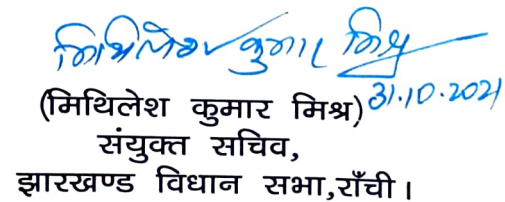 मिथिलेश कुमार मिश्र
31.10.2021
(मिथिलेश कुमार मिश्र)
संयुक्त सचिव,
झारखण्ड विधान सभा,राँची।